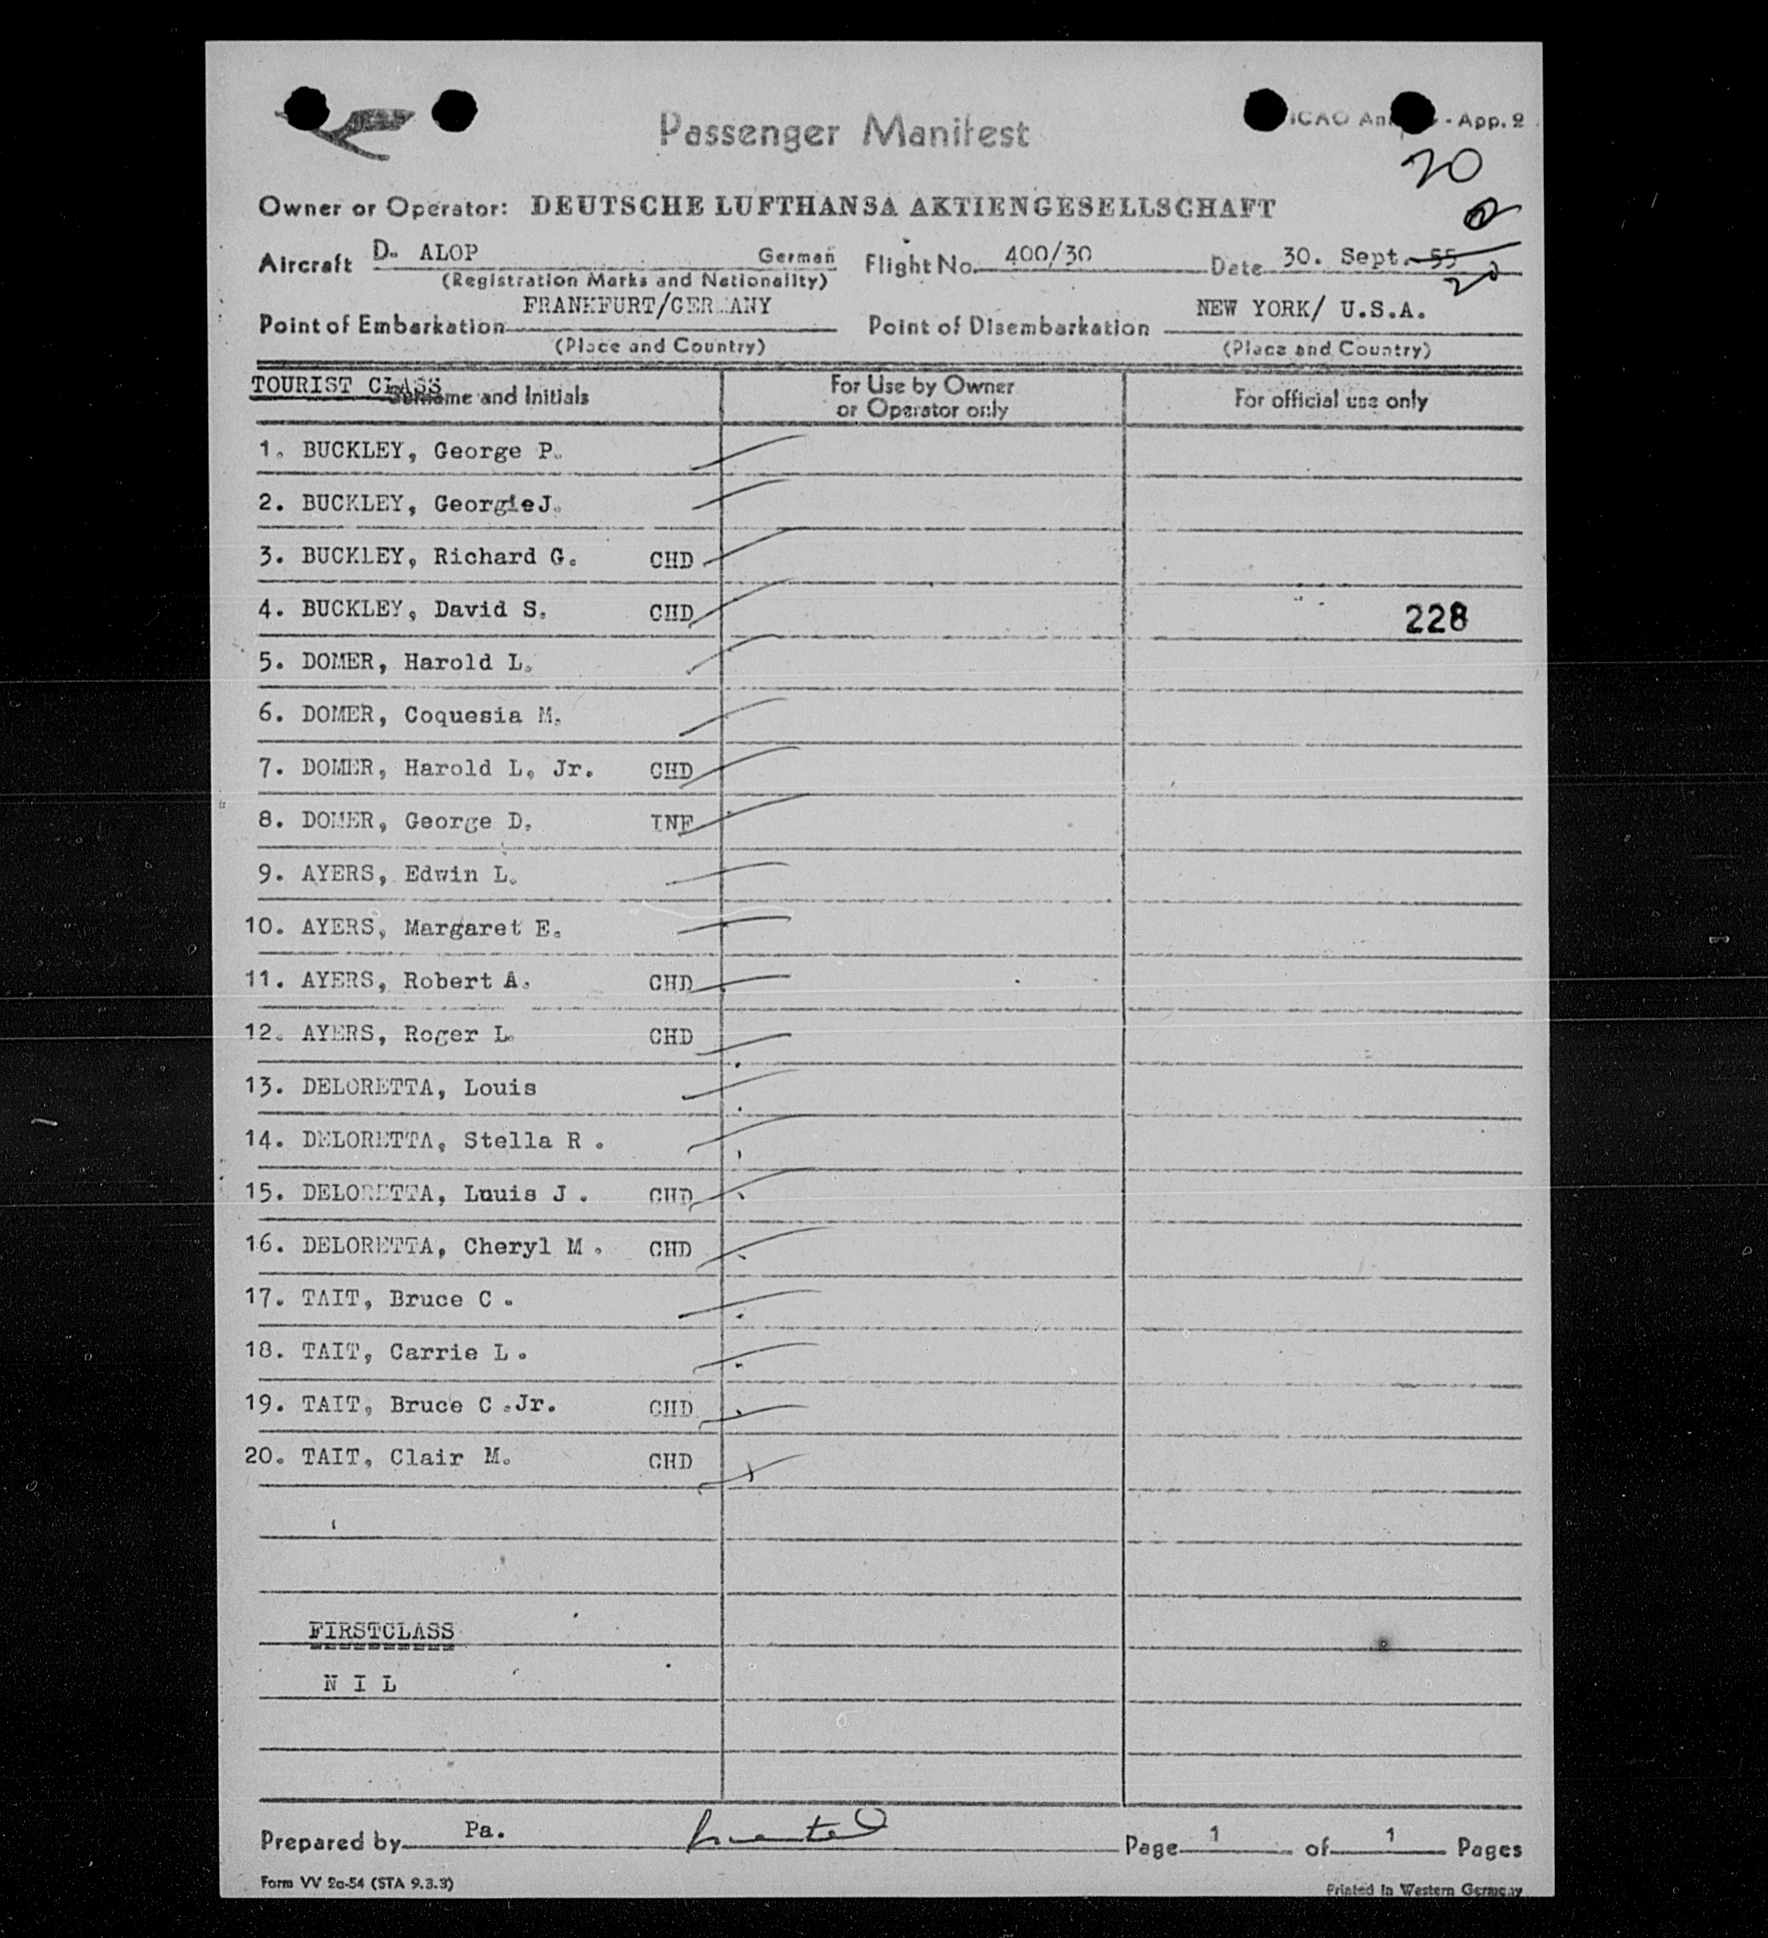 Passenger Manifest
ICAO - App. 2
20
Owner or Operator: DEUTSCHE LUFTHANSA AKTIENGESELLSCHAFT
Aircraft D. ALOP German Flight No. 400/30 Date 30. Sept. 55
(Registration Marks and Nationality)
20
Point of Embarkation FRANKFURT/GERMANY Point of Disembarkation NEW YORK/ U.S.A.
(Place and Country) (Place and Country)
TOURIST CLASS
Surname and Initials
For Use by Owner
or Operator only
For official use only
1. BUCKLEY, George P.
2. BUCKLEY, Georgie J.
3. BUCKLEY, Richard G. CHD
4. BUCKLEY, David S. CHD 228
5. DOMER, Harold L.
6. DOMER, Coquesia M.
7. DOMER, Harold L, Jr. CHD
8. DOMER, George D. INF
9. AYERS, Edwin L.
10. AYERS, Margaret E.
11. AYERS, Robert A. CHD
12. AYERS, Roger L. CHD
13. DELORETTA, Louis
14. DELORETTA, Stella R .
15. DELORETTA, Luuis J . CHD
16. DELORETTA, Cheryl M . CHD
17. TAIT, Bruce C .
18. TAIT, Carrie L .
19. TAIT, Bruce C .Jr. CHD
20. TAIT, Clair M. CHD
FIRSTCLASS
N I L
Prepared by Pa. Page 1 of 1 Pages
Form VV 2a-54 (STA 9.3.3) Printed in Western Germany